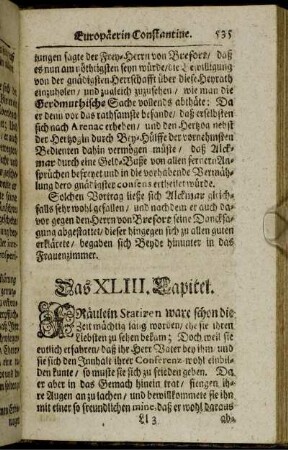 Europäerin Constantine. 535
tungen sagte der Frey-Herrn von Bresort, daß
es nun am nöthigsten seyn würde, die Bewilligung
von der gnädigsten Herrschafft über diese Heyrath
einzuholen, und zugleich zuzusehen, wie man die
Gerdmuthische Sache vollends abthäte: Da
er denn vor das rathsamste befand, daß er selbsten
sich nach Aronac erheben, und den Hertzog nebst
der Hertzogin durch Bey-Hülffe der vornehmsten
Bedienten dahin vermögen müste, daß Alck-
mar durch eine Geld-Busse von allen fernern An-
sprüchen befreyet und in die vorhabende Vermäh-
lung dero gnädigster consens ertheilet würde.
Solchen Vortrag ließe sich Alckmar gleich-
falls sehr wohl gefallen, und nachdem er auch da-
vor gegen den Herrn von Bresort seine Dancksa-
gung abgestattet, dieser hingegen sich zu allen guten
erklärete, begaben sich Beyde hinunter in das
Frauenzimmer.
Das XLIII. Capitel.
Fräulein Statiren ware schon die
Zeit mächtig lang worden, ehe sie ihren
Liebsten zu sehen bekam; Doch weil sie
eutlich erfahren, daß ihr Herr Vater bey ihm und
sie sich den Innhalt ihrer Conferenz wohl einbil-
den kunte, so muste sie sich zu frieden geben. Da
er aber in das Gemach hinein trat, fiengen ihre
Augen an zu lachen, und bewillkommete sie ihn
mit einer so freundlichen mine, daß er wohl daraus
Ll 3 ab-